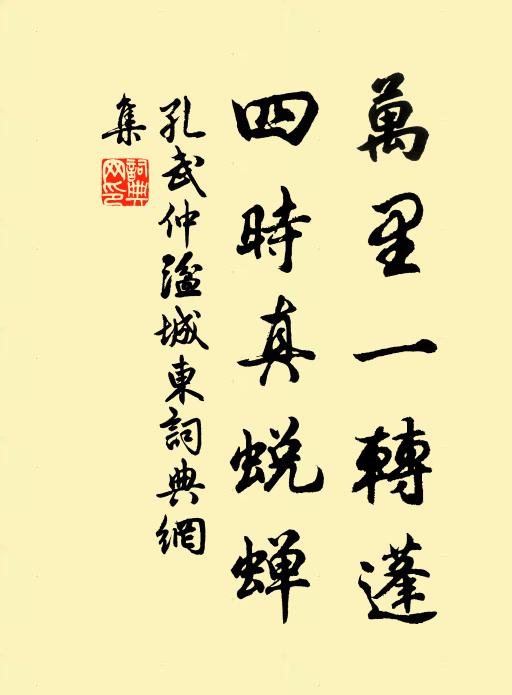 萬里一轉蓬
四時真蜕蟬
孔武仲湓城東詞典網
集
詞典網印